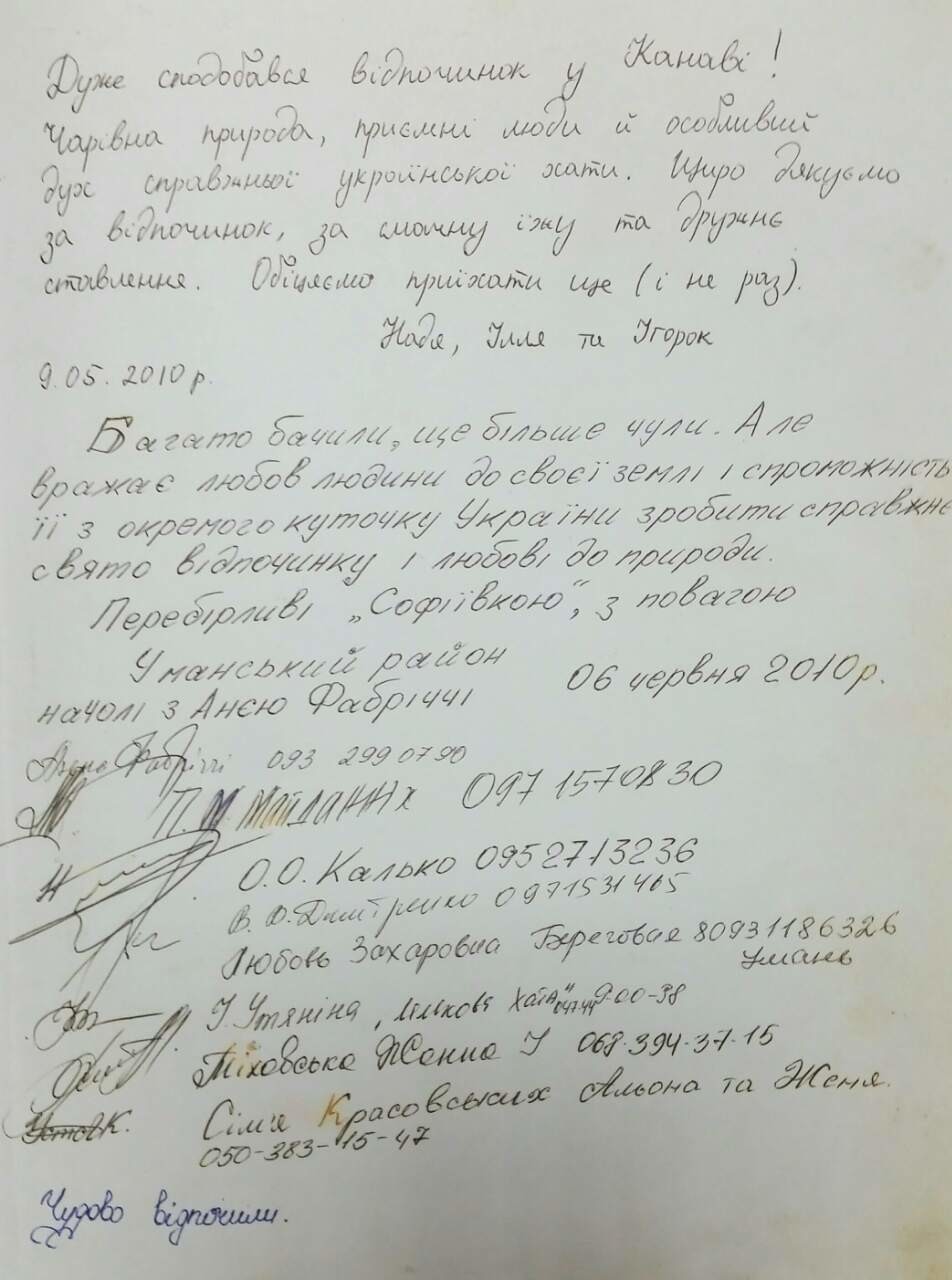 Дуже сподобався відпочинок у Канаві!
Чарівна природа, приємні люди й особливий
дух справжньої української хати. Щиро дякуємо
за відпочинок, за смачну їжу та дружнє
ставлення. Обіцяємо приїхати ще (і не раз).
Надя, Ілля та Ігорок
9.05.2010 р.
Багато бачили, ще більше чули. Але
вражає любов людини до своєї землі і спроможність
її з окремого куточку України зробити справжнє
свято відпочинку і любові до природи.
Перебірливі „Софіївкою", з повагою
Уманський район
06 червня 2010р.
начолі з Анєю Фабріччі
Фабріччі 093 299 07 90
П. М. 097 1570830
О.О. Калько 0952713236
В. О. Дмитренко 0971531465
Любовь Захаровна Береговая 80931186326
Умань
І. Утяніна, хата" 9-00-38
Жанна І 068-394-37-15
Сім'я Красовських Альона та Женя.
050-383-15-47
Чудово відпочили.